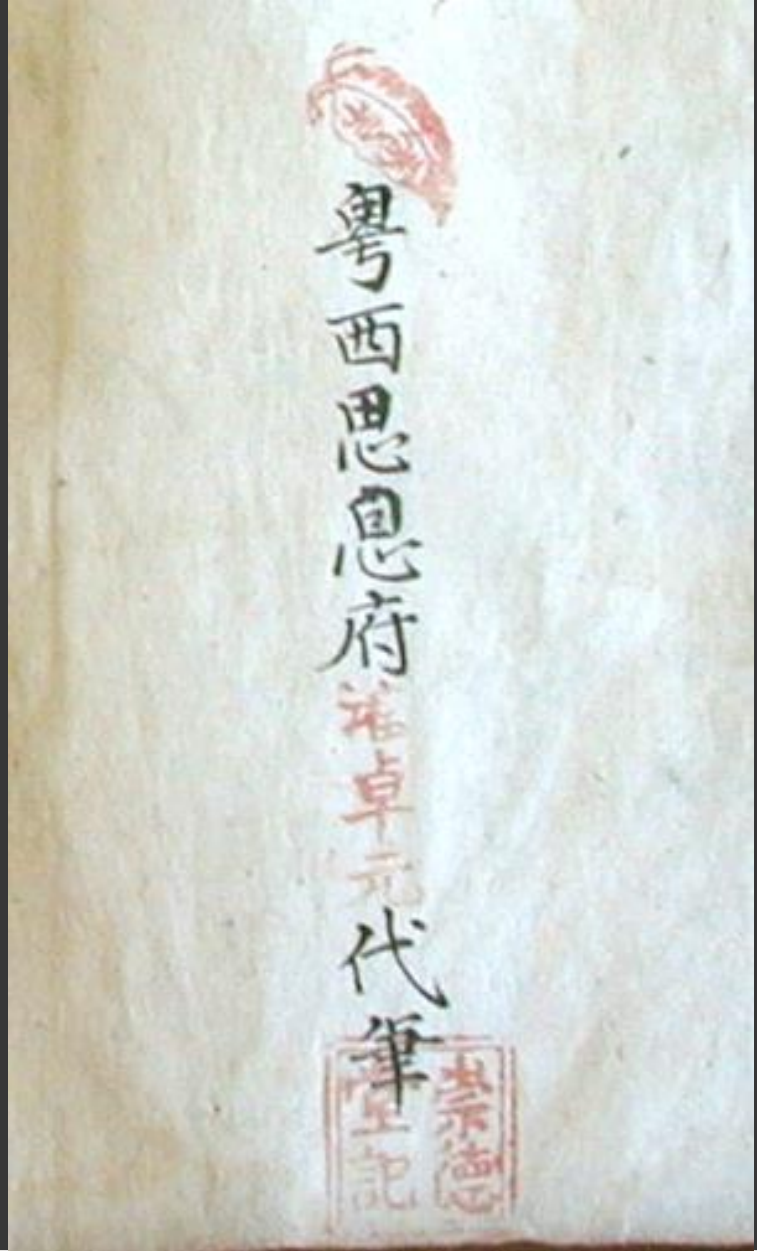 粤西思息府卓元代筆
崇德
堂記